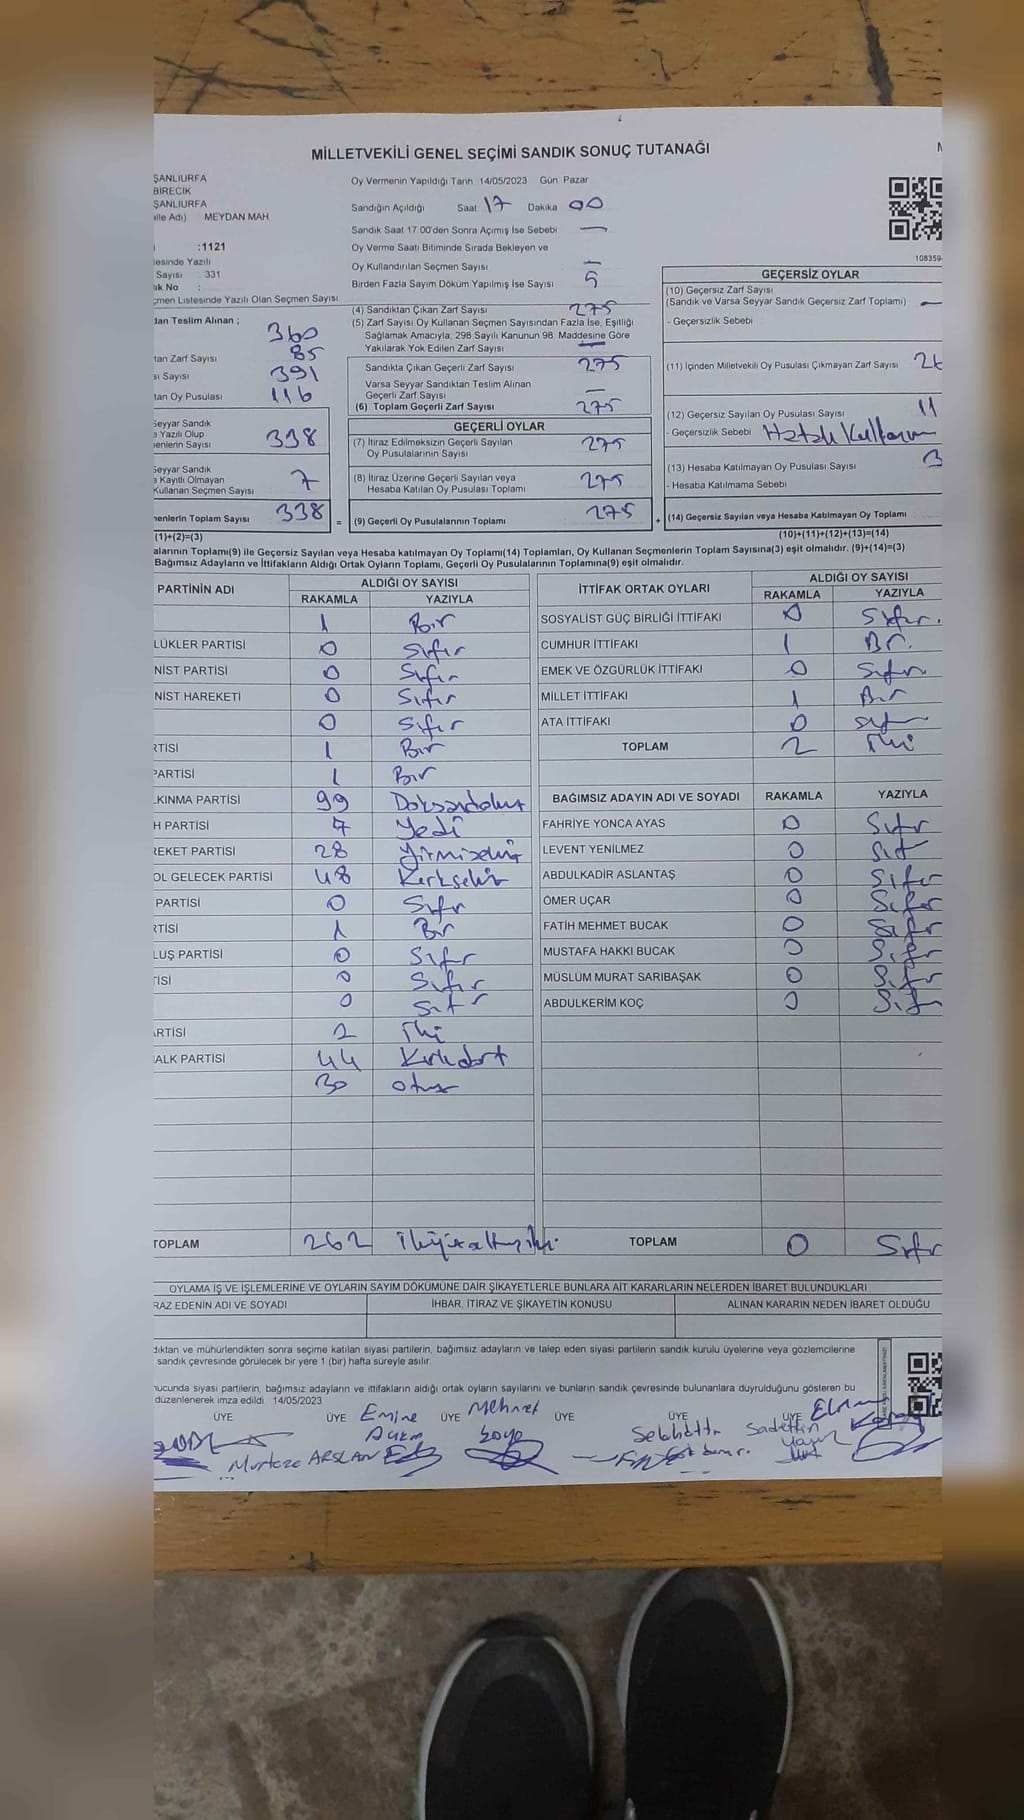 MİLLETVEKİLİ GENEL SEÇİMİ SANDIK SONUÇ TUTANAĞI
ŞANLIURFA
BİRECİK
ŞANLIURFA
Adı) MEYDAN MAH
:1121
esinde Yazılı
Sayısı : 331
No :
Listesinde Yazılı Olan Seçmen Sayısı
Oy Vermenin Yapıldığı Tarih 14/05/2023 Gün Pazar
Sandığın Açıldığı Saat 17 Dakika 00
Sandık Saat 17.00'den Sonra Açımış İse Sebebi —
Oy Verme Saati Bitiminde Sırada Bekleyen ve
Oy Kullandırılan Seçmen Sayısı —
Birden Fazla Sayım Döküm Yapılmış İse Sayısı 5
108359
dan Teslim Alınan ; 360
tan Zarf Sayısı 85
Sayısı 391
tan Oy Pusulası 116
Seyyar Sandık
Yazılı Olup
menlerin Sayısı 338
Seyyar Sandık
Kayıtlı Olmayan
Kullanan Seçmen Sayısı 7
menlerin Toplam Sayısı 338 =
(1)+(2)=(3)
(4) Sandıktan Çıkan Zarf Sayısı 275
(5) Zarf Sayısı Oy Kullanan Seçmen Sayısından Fazla İse, Eşitliği
Sağlamak Amacıyla, 298 Sayılı Kanunun 98. Maddesine Göre
Yakılarak Yok Edilen Zarf Sayısı —
Sandıkta Çıkan Geçerli Zarf Sayısı 275
Varsa Seyyar Sandıktan Teslim Alınan
Geçerli Zarf Sayısı —
(6) Toplam Geçerli Zarf Sayısı 275
GEÇERLİ OYLAR
(7) İtiraz Edilmeksizin Geçerli Sayılan
Oy Pusulalarının Sayısı 275
(8) İtiraz Üzerine Geçerli Sayılan veya
Hesaba Katılan Oy Pusulası Toplamı 275
(9) Geçerli Oy Pusulalarının Toplamı 275 +
GEÇERSİZ OYLAR
(10) Geçersiz Zarf Sayısı
(Sandık ve Varsa Seyyar Sandık Geçersiz Zarf Toplamı) —
- Geçersizlik Sebebi
(11) İçinden Milletvekili Oy Pusulası Çıkmayan Zarf Sayısı
(12) Geçersiz Sayılan Oy Pusulası Sayısı 11
- Geçersizlik Sebebi Hatalı
(13) Hesaba Katılmayan Oy Pusulası Sayısı 3
- Hesaba Katılmama Sebebi
(14) Geçersiz Sayılan veya Hesaba Katılmayan Oy Toplamı
(10)+(11)+(12)+(13)=(14)
alarının Toplamı(9) ile Geçersiz Sayılan veya Hesaba katılmayan Oy Toplamı(14) Toplamları, Oy Kullanan Seçmenlerin Toplam Sayısına(3) eşit olmalıdır. (9)+(14)=(3)
Bağımsız Adayların ve İttifakların Aldığı Ortak Oyların Toplamı, Geçerli Oy Pusulalarının Toplamına(9) eşit olmalıdır.
PARTİNİN ADI ALDIĞI OY SAYISI
RAKAMLA YAZIYLA
1 Bir
LÜKLER PARTİSİ 0 Sıfır
NİST PARTİSİ 0 Sıfır
NİST HAREKETİ 0 Sıfır
0 Sıfır
RTİSİ 1 Bir
PARTİSİ 1 Bir
LKINMA PARTİSİ 99 Doksandokuz
H PARTİSİ 7 Yedi
REKET PARTİSİ 28 Yirmisekiz
OL GELECEK PARTİSİ 48 Kırksekiz
PARTİSİ 0 Sıfır
RTİSİ 1 Bir
LUŞ PARTİSİ 0 Sıfır
TİSİ 0 Sıfır
0 Sıfır
ARTİSİ 2 İki
ALK PARTİSİ 44 Kırkdört
30 otuz
TOPLAM 262 İkiyüzaltmışiki
İTTİFAK ORTAK OYLARI ALDIĞI OY SAYISI
RAKAMLA YAZIYLA
SOSYALİST GÜÇ BİRLİĞİ İTTİFAKI 0 Sıfır.
CUMHUR İTTİFAKI 1 Bir.
EMEK VE ÖZGÜRLÜK İTTİFAKI 0 Sıfır
MİLLET İTTİFAKI 1 Bir
ATA İTTİFAKI 0 Sıfır
TOPLAM 2 İki
BAĞIMSIZ ADAYIN ADI VE SOYADI RAKAMLA YAZIYLA
FAHRİYE YONCA AYAS 0 Sıfır
LEVENT YENİLMEZ 0 Sıfır
ABDULKADİR ASLANTAŞ 0 Sıfır
ÖMER UÇAR 0 Sıfır
FATİH MEHMET BUCAK 0 Sıfır
MUSTAFA HAKKI BUCAK 0 Sıfır
MÜSLÜM MURAT SARIBAŞAK 0 Sıfır
ABDULKERİM KOÇ 0 Sıfır
TOPLAM 0 Sıfır
OYLAMA İŞ VE İŞLEMLERİNE VE OYLARIN SAYIM DÖKÜMÜNE DAİR ŞİKAYETLERLE BUNLARA AİT KARARLARIN NELERDEN İBARET BULUNDUKLARI
RAZ EDENİN ADI VE SOYADI İHBAR, İTİRAZ VE ŞİKAYETİN KONUSU ALINAN KARARIN NEDEN İBARET OLDUĞU
dıktan ve mühürlendikten sonra seçime katılan siyasi partilerin, bağımsız adayların ve talep eden siyasi partilerin sandık kurulu üyelerine veya gözlemcilerine
sandık çevresinde görülecek bir yere 1 (bir) hafta süreyle asılır.
nucunda siyasi partilerin, bağımsız adayların ve ittifakların aldığı ortak oyların sayılarını ve bunların sandık çevresinde bulunanlara duyrulduğunu gösteren bu
düzenlenerek imza edildi. 14/05/2023
ÜYE ÜYE ÜYE ÜYE ÜYE ÜYE
Emine Mehmet
Murteze ARSLAN
Sadettin